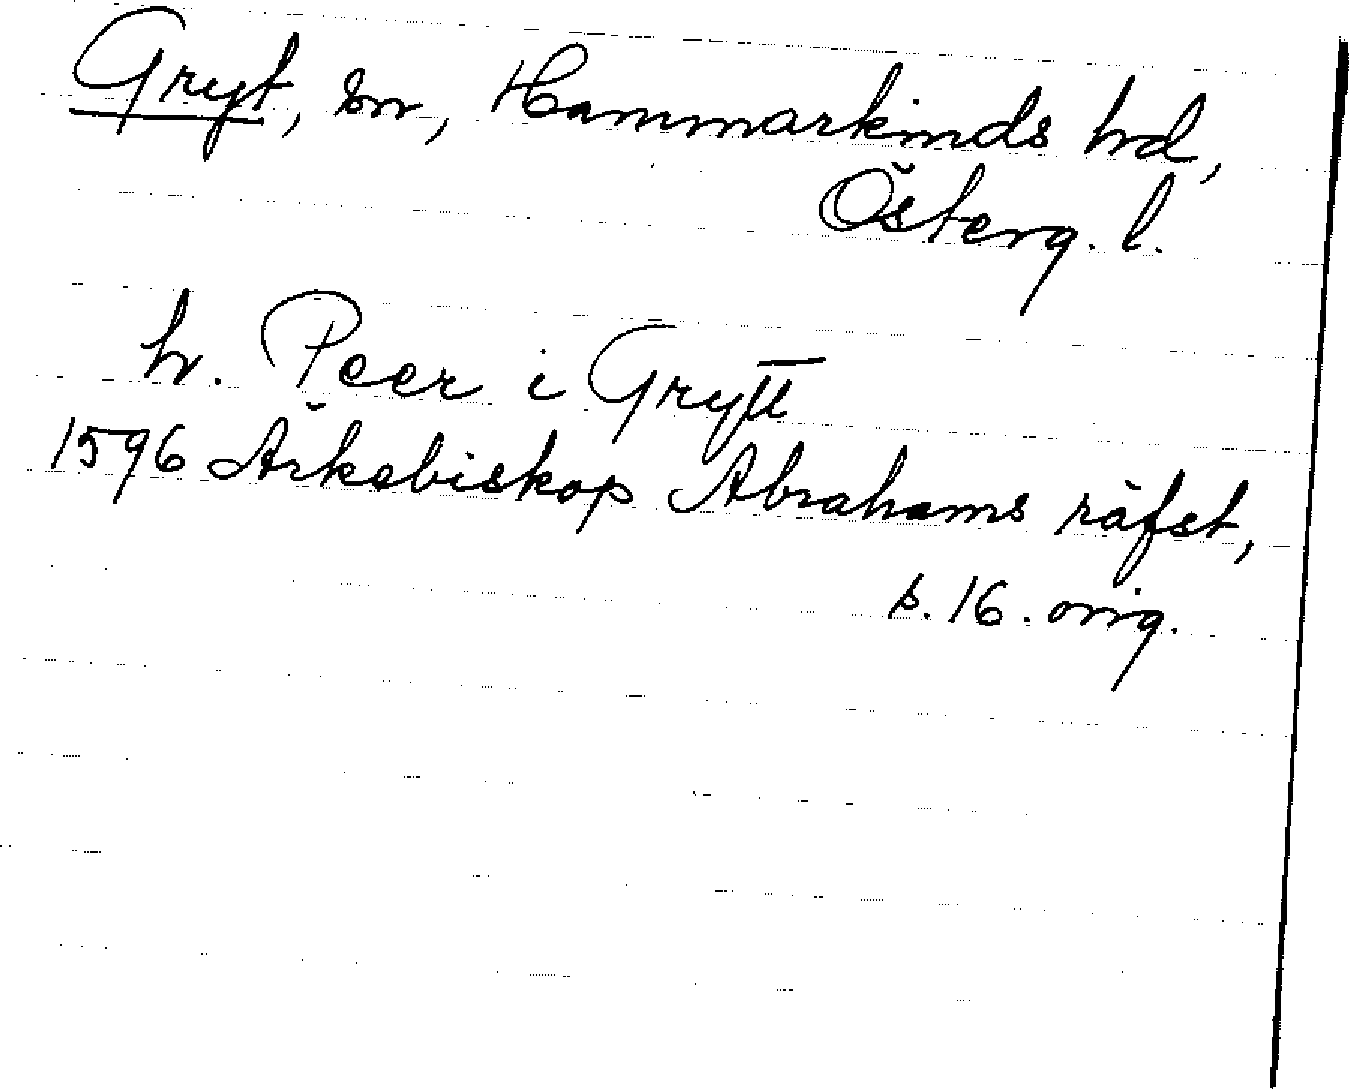 Gryt, sn, Hammarkinds hd,
Österg. l.
h. Peer i Grytt
1596 Ärkebiskop Abrahams räfst,
s. 16. orig.